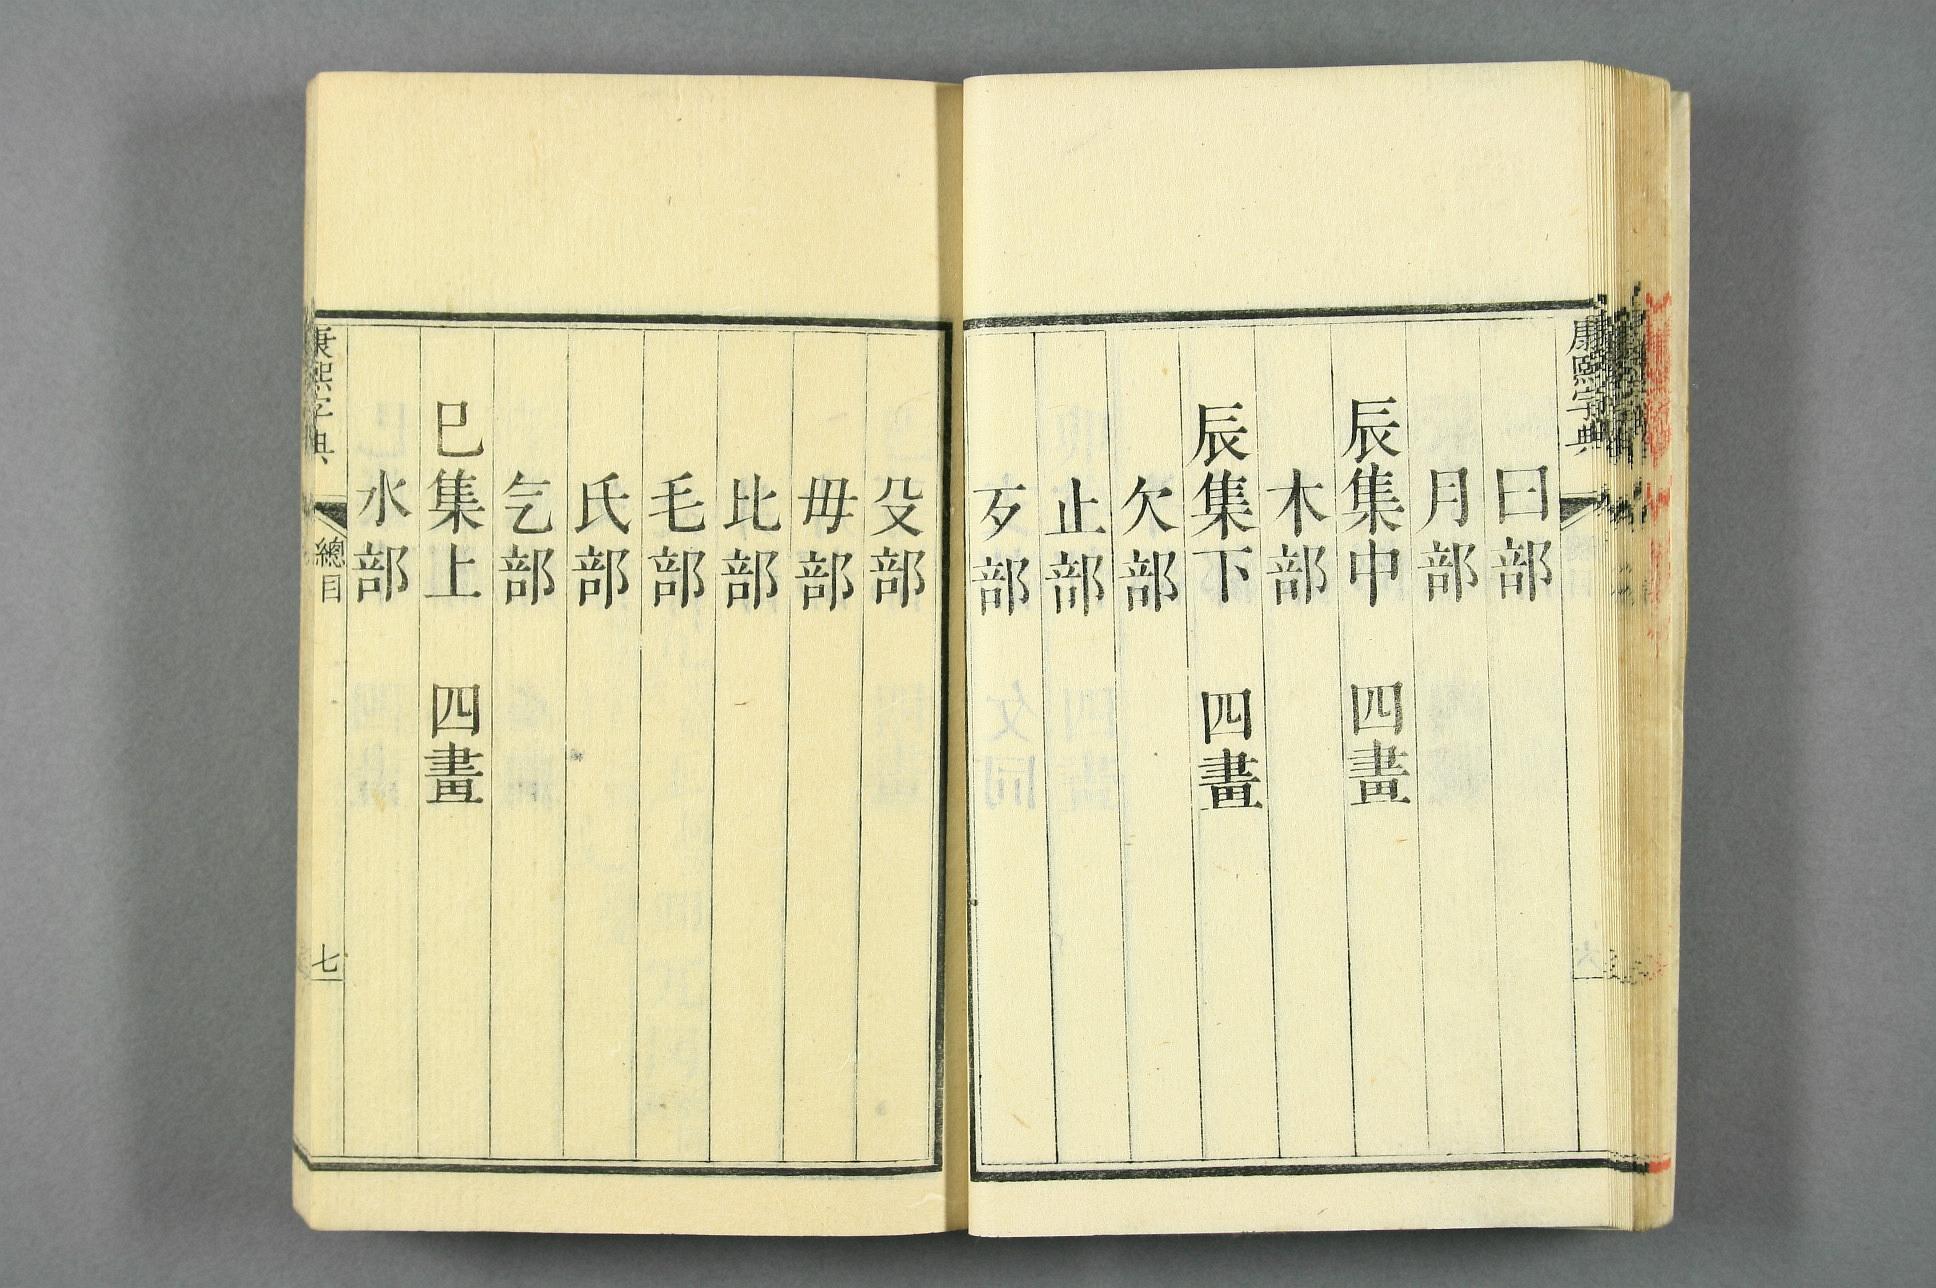 康熙字典
曰部
月部
辰集中 四畫
木部
辰集下 四畫
欠部
止部
歹部
殳部
毋部
比部
毛部
氏部
气部
巳集上 四畫
水部
康熙字典 總目 七